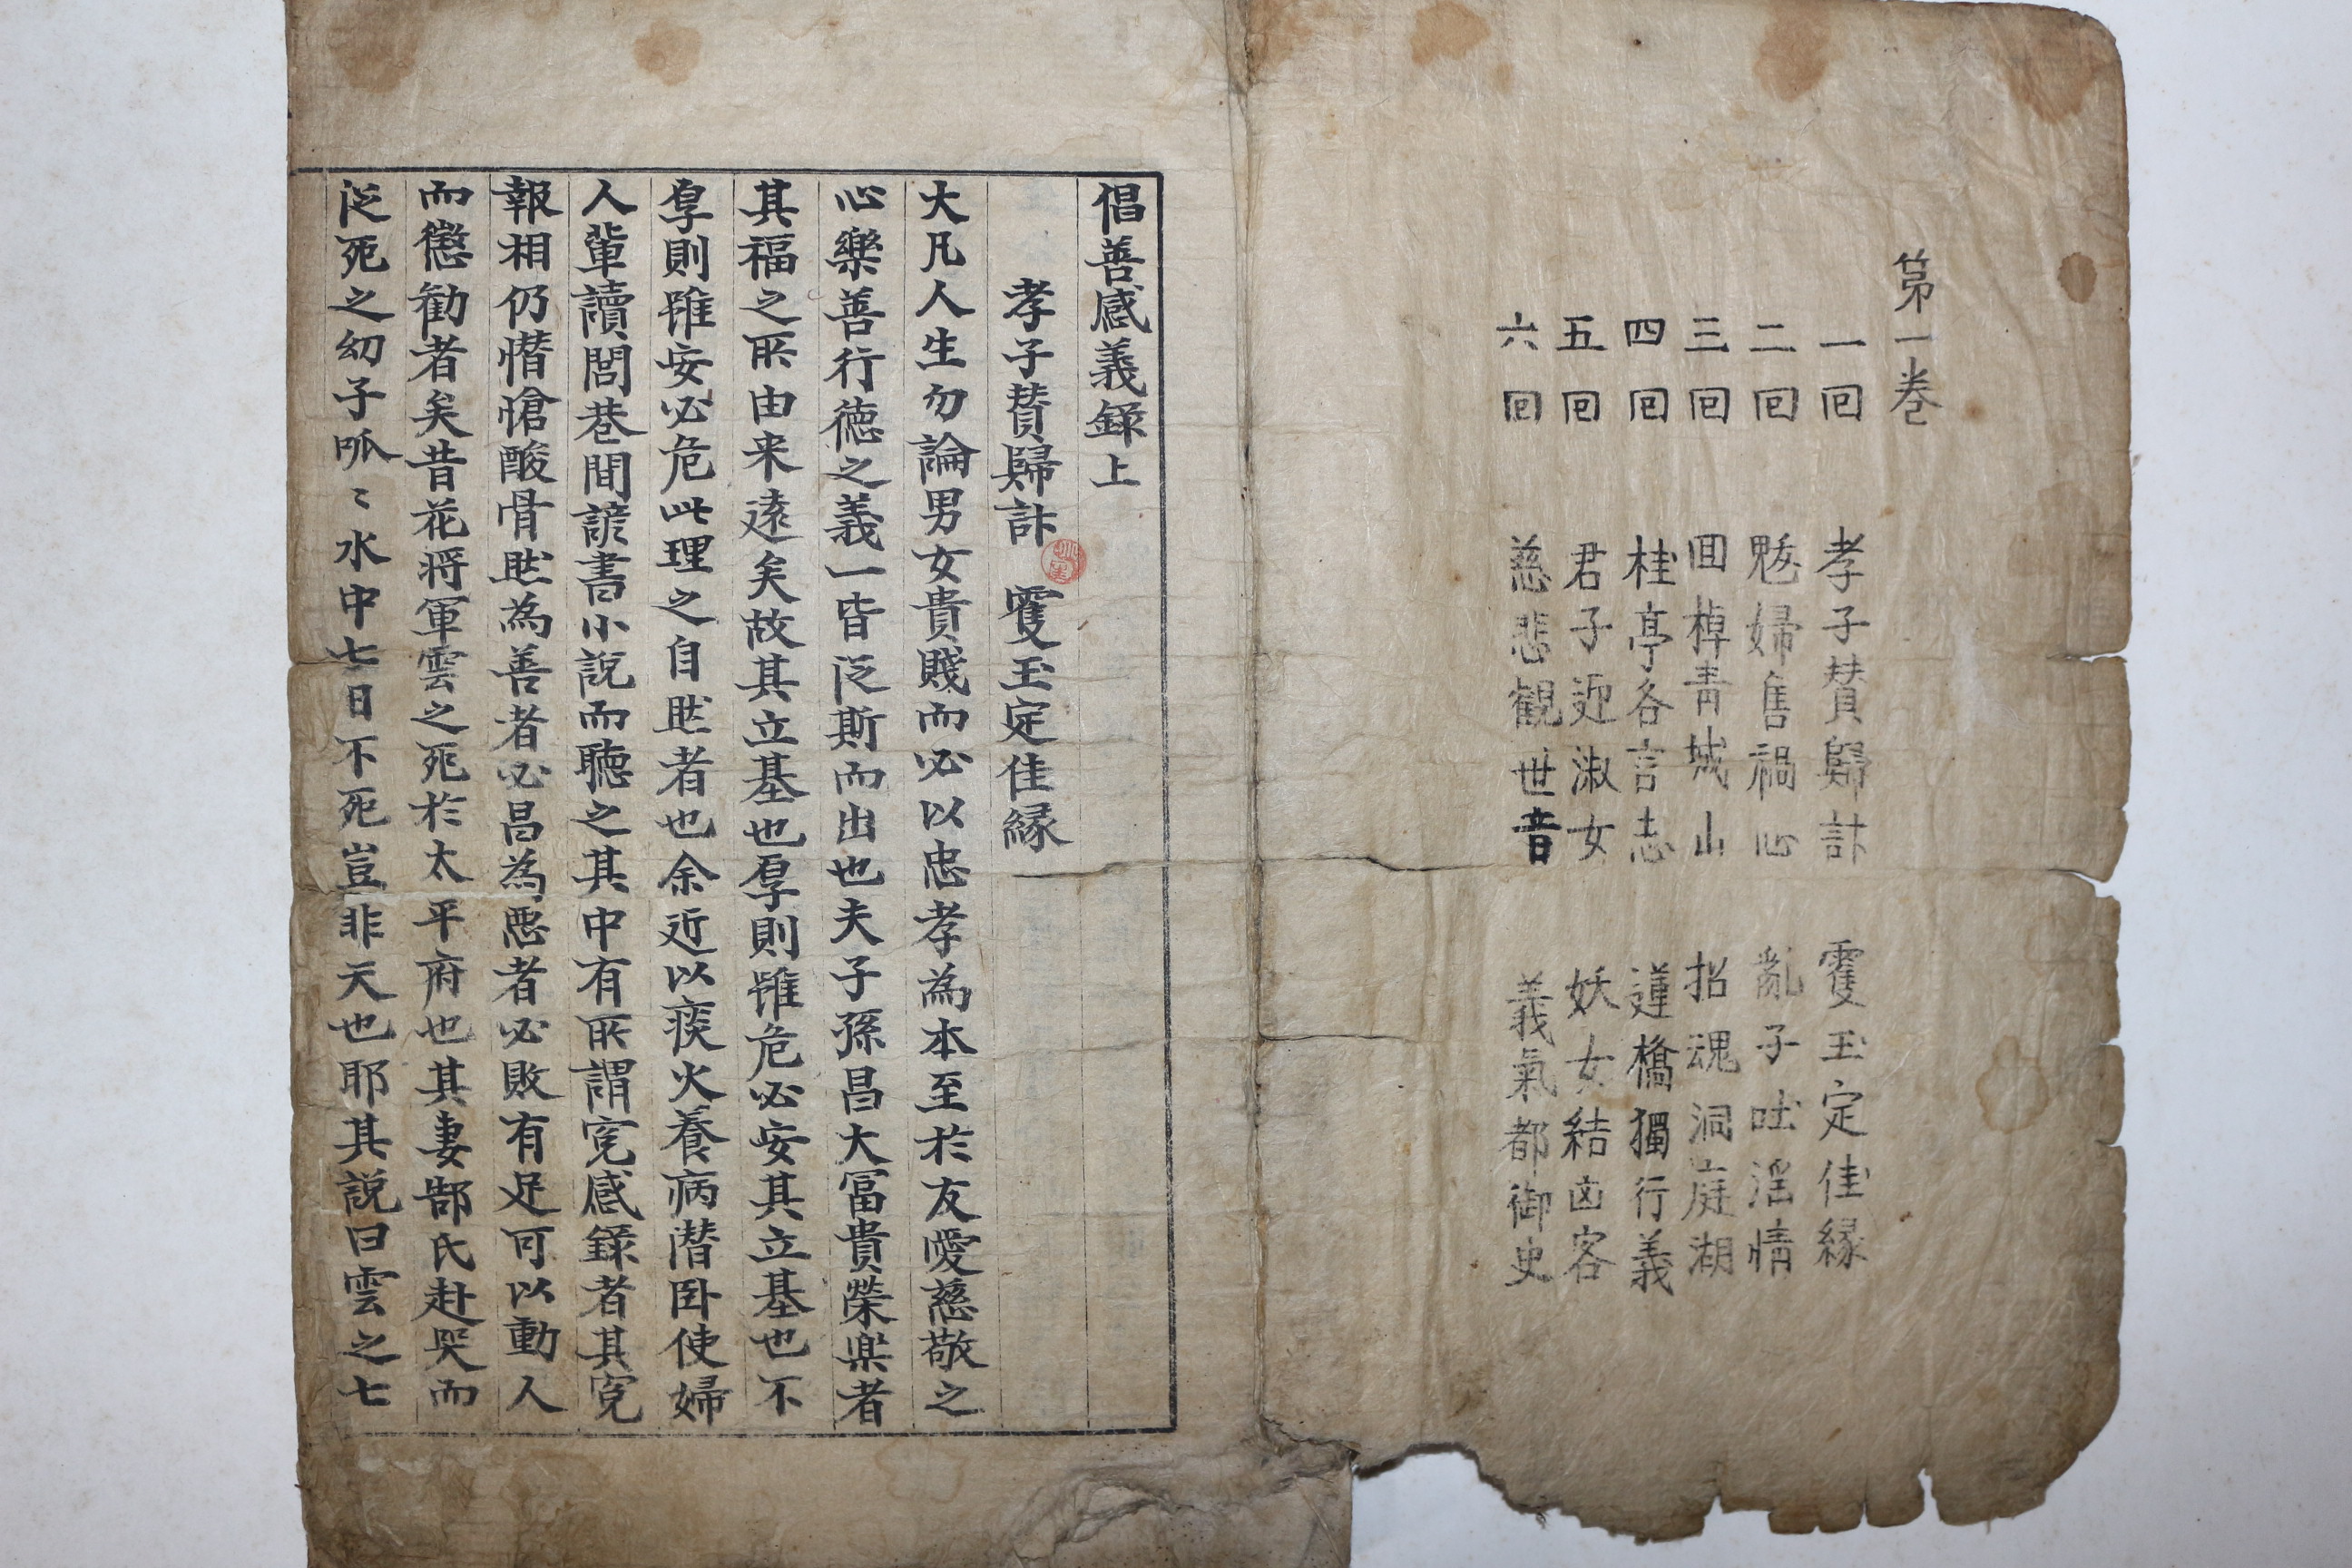 第一卷
一回 孝子賛歸計 䨥玉定佳縁
二回 魃婦售禍心 亂子吐淫情
三回 回棹靑城山 招魂洞庭湖
四回 桂亭各言志 蓮橋獨行義
五回 君子迎淑女 妖女結凶客
六回 慈悲観世音 義氣都御史
倡善感義錄上
孝子賛歸計 䨥玉定佳縁
大凡人生勿論男女貴賤而必以忠孝為本至於友愛慈敬之
心樂善行徳之義一皆泛斯而出也夫子孫昌大冨貴榮楽者
其福之所由来遠矣故其立基也厚則雖危必安其立基也不
厚則雖安必危此理之自然者也余近以痰火養病潜卧使婦
人輩讀閭巷間諺書小説而聽之其中有所謂寃感錄者其寃
報相仍憯愴酸骨然為善者必昌為惡者必敗有足可以動人
而懲勧者矣昔花將軍雲之死於太平府也其妻郜氏赴哭而
泛死之幼子呱〻水中七日不死豈非天也耶其説曰雲之七